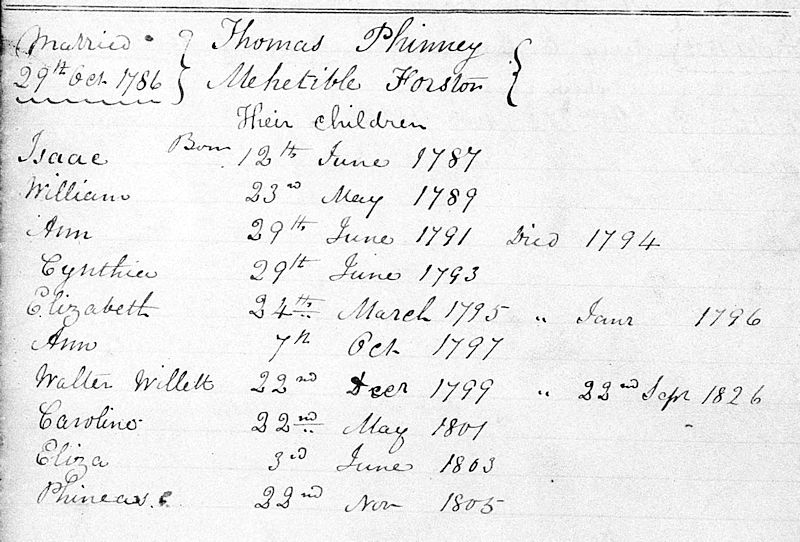 Married Thomas Phinney
29th Oct 1786 Mehetible Forston
Their children
Isaac Born 12th June 1787
William 23rd May 1789
Ann 29th June 1791 Died 1794
Cynthia 29th June 1793
Elizabeth 24th March 1795 " Janr 1796
Ann 7th Oct 1797
Walter Willett 22nd Decr 1799 " 22nd Sepr 1826
Caroline 22nd May 1801
Eliza 3rd June 1803
Phineas 22nd Nov 1805